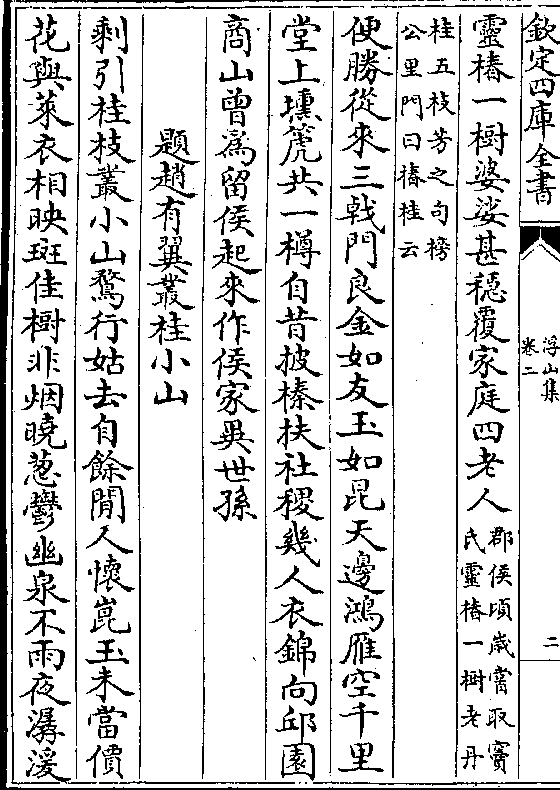 欽定四庫全書
浮山集
卷二
二
靈椿一樹婆娑甚穏覆家庭四老人
郡侯頃歳嘗取竇
氏靈椿一樹老丹
桂五枝芳之句榜
公里門曰椿桂云
便勝從來三㦸門良金如友玉如昆天邊鴻雁空千里
堂上壎箎共一樽自昔披榛扶社稷幾人衣錦向邱園
商山曾為留侯起來作侯家異世孫
題趙有翼叢桂小山
剰引桂枝叢小山鶩行姑去自餘閒人懷崑玉未當價
花與萊衣相映斑佳樹非烟曉葱鬱幽泉不雨夜潺湲